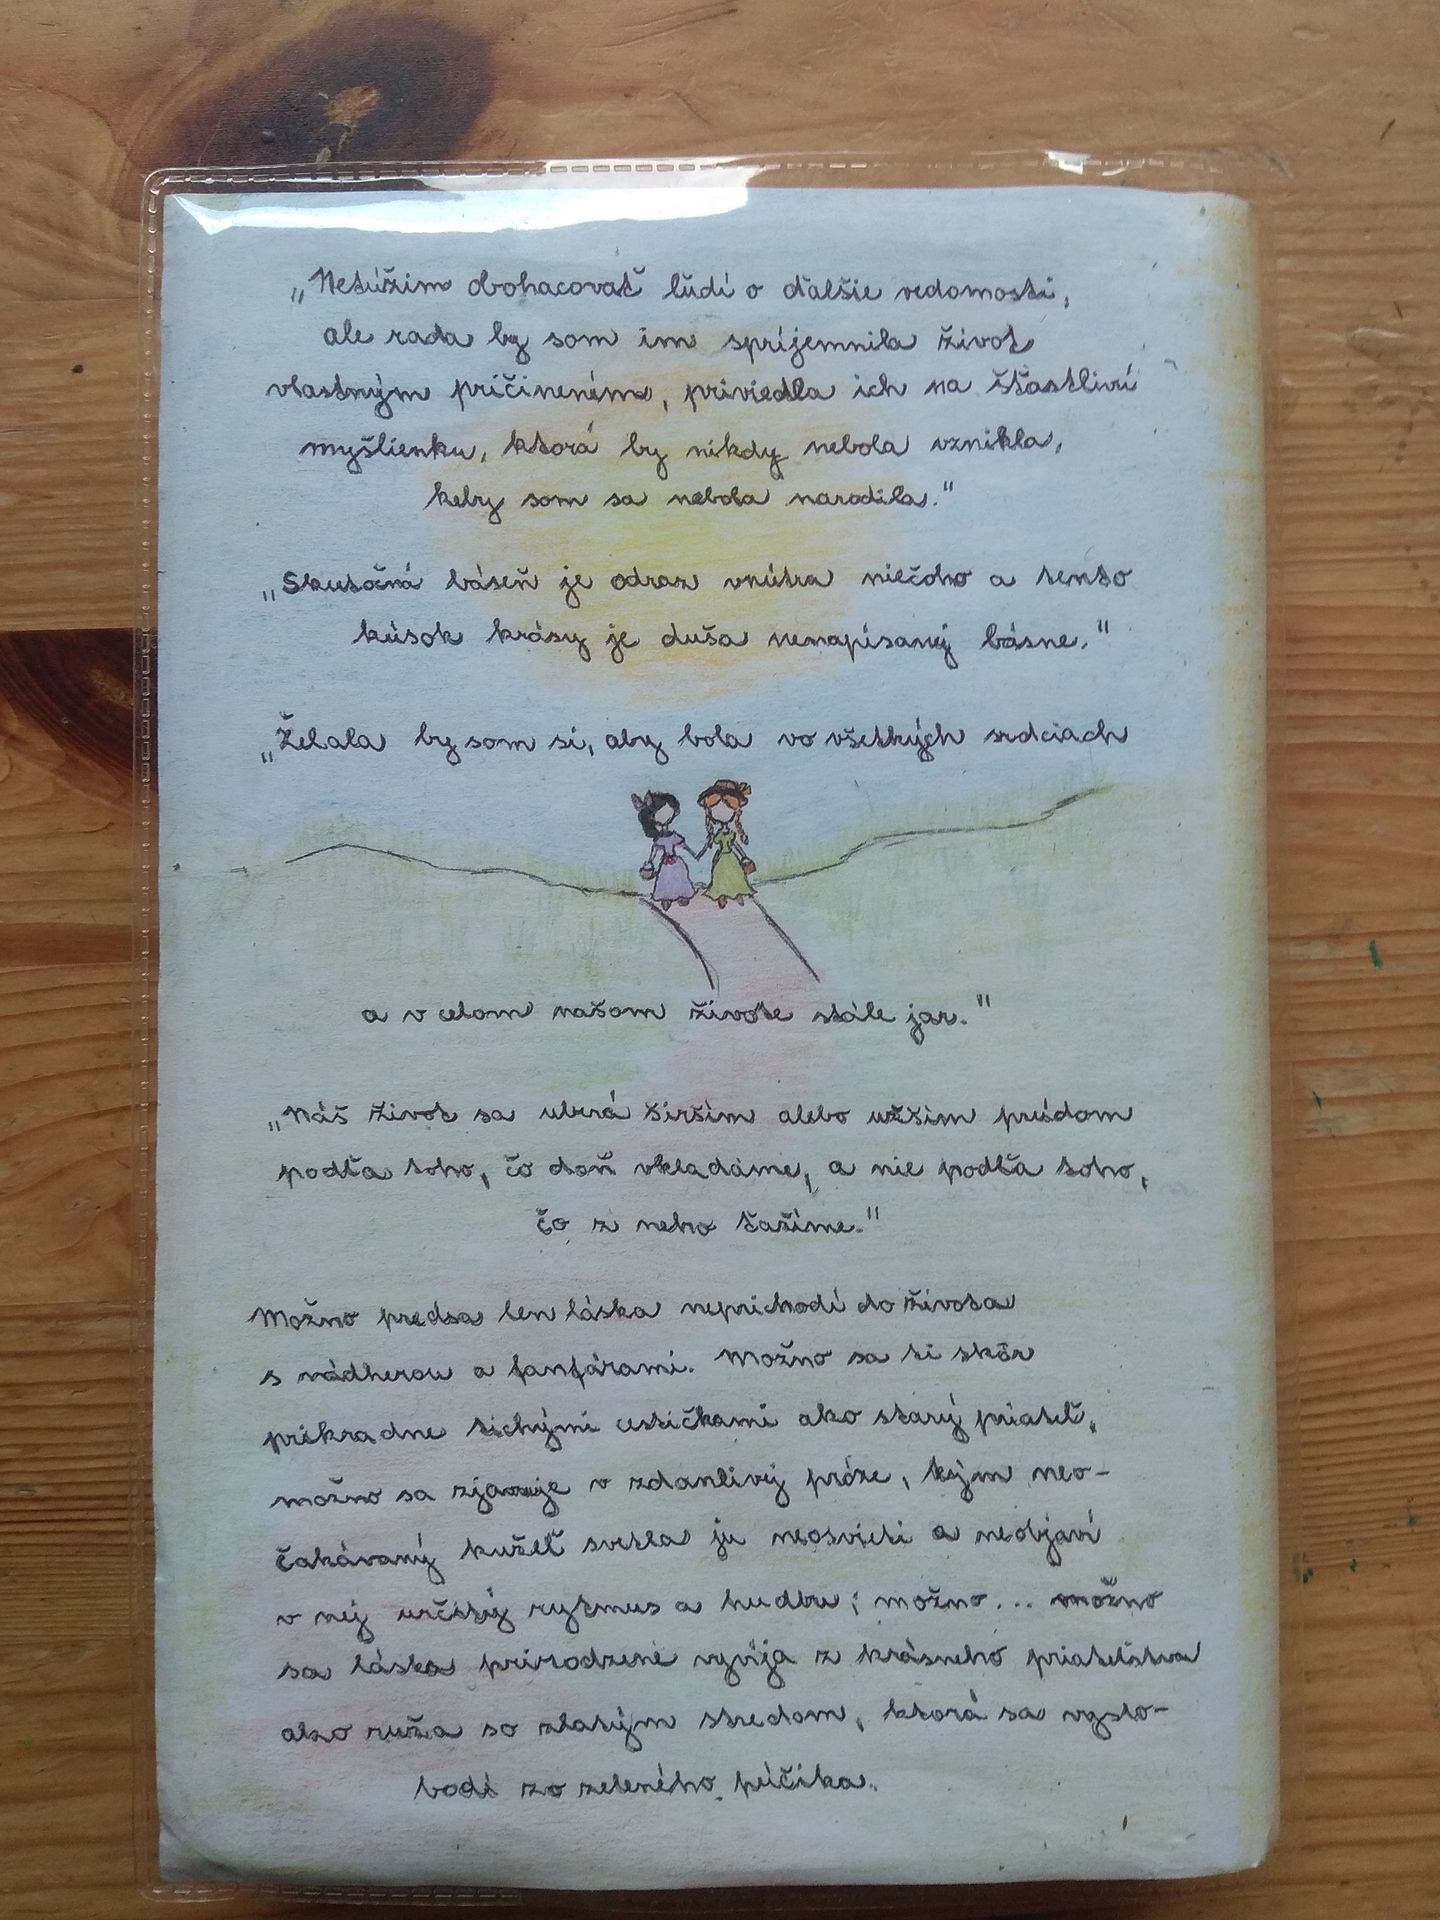 „Netúžim obohacovať ľudí o ďalšie vedomosti,
ale rada by som im spríjemnila život
vlastným pričinením, priviedla ich na šťastlivú
myšlienku, ktorá by nikdy nebola vznikla,
keby som sa nebola narodila."
„Skutočná báseň je odraz vnútra niečoho a tento
kúsok krásy je duša nenapísanej básne."
„Želala by som si, aby bola vo všetkých srdciach
a v celom našom živote stále jar."
„Náš život sa uberá širším alebo užším prúdom
podľa toho, čo doň vkladáme, a nie podľa toho,
čo z neho ťažíme."
Možno predsa len láska neprichodí do života
s nádherou a fanfárami. Možno sa ti skôr
prikradne tichými cestičkami ako starý priateľ,
možno sa zjavuje v zdanlivej próze, kým neo-
čakávaný kužeľ svetla ju neosvieti a neobjaví
v nej určitý rytmus a hudbu; možno... možno
sa láska prirodzene vyvíja z krásneho priateľstva
ako ruža so zlatým stredom, ktorá sa vyslo-
bodí zo zeleného púčika.